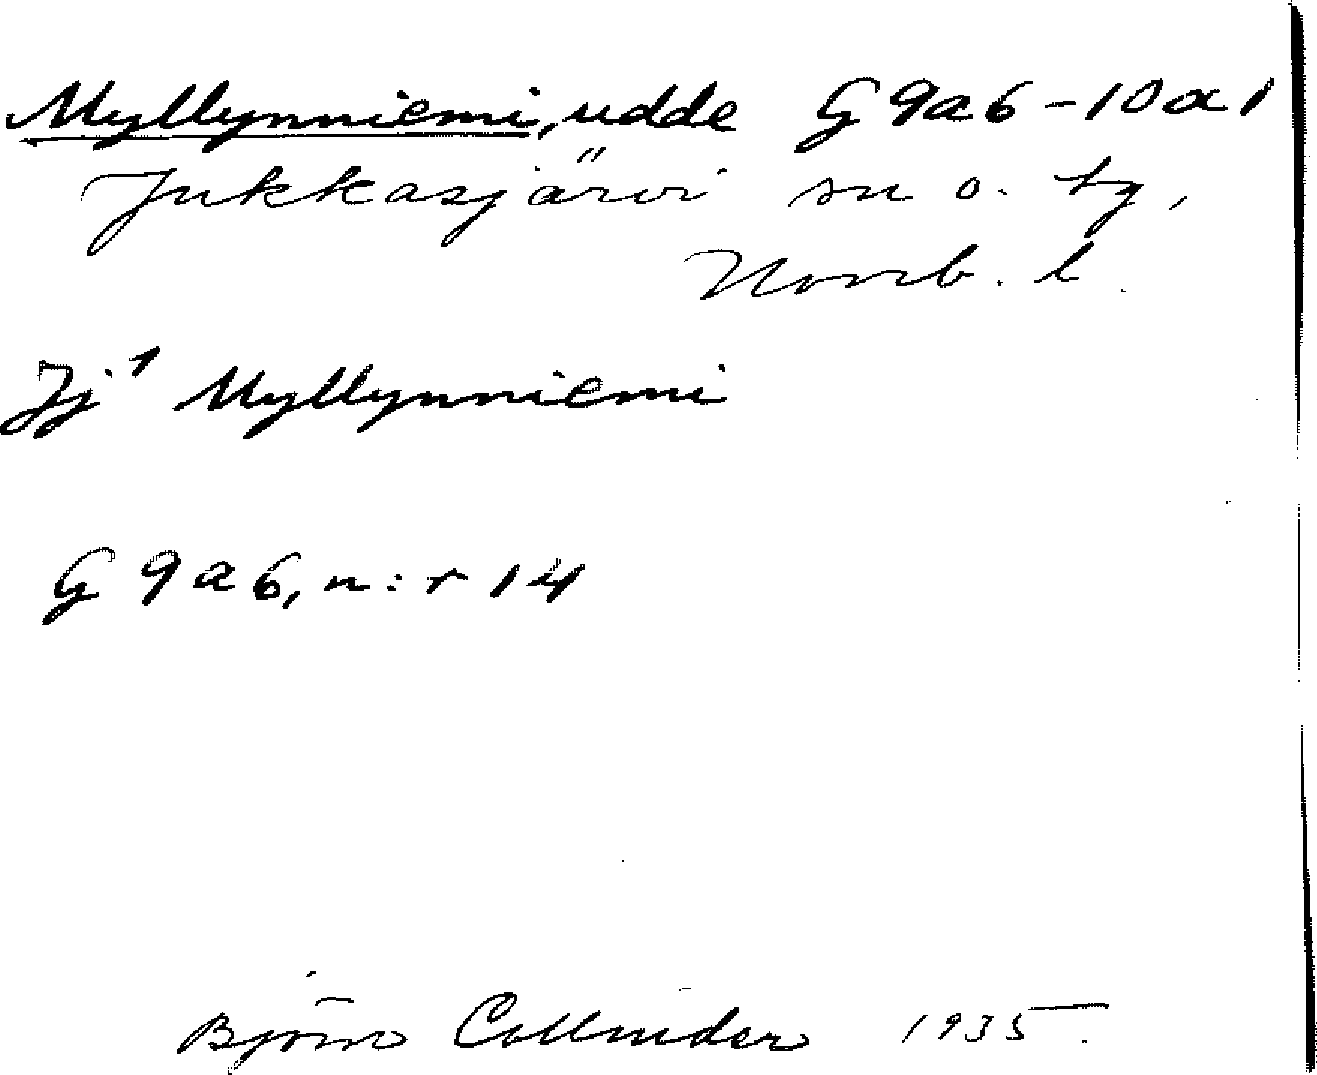 Myllynniemi, udde G 9a6-10a1
Jukkasjärvi sn o. tg,
Norrb. l.
Jj¹ Myllynniemi
G 9a6, n:r 14
Björn Collinder 1935.